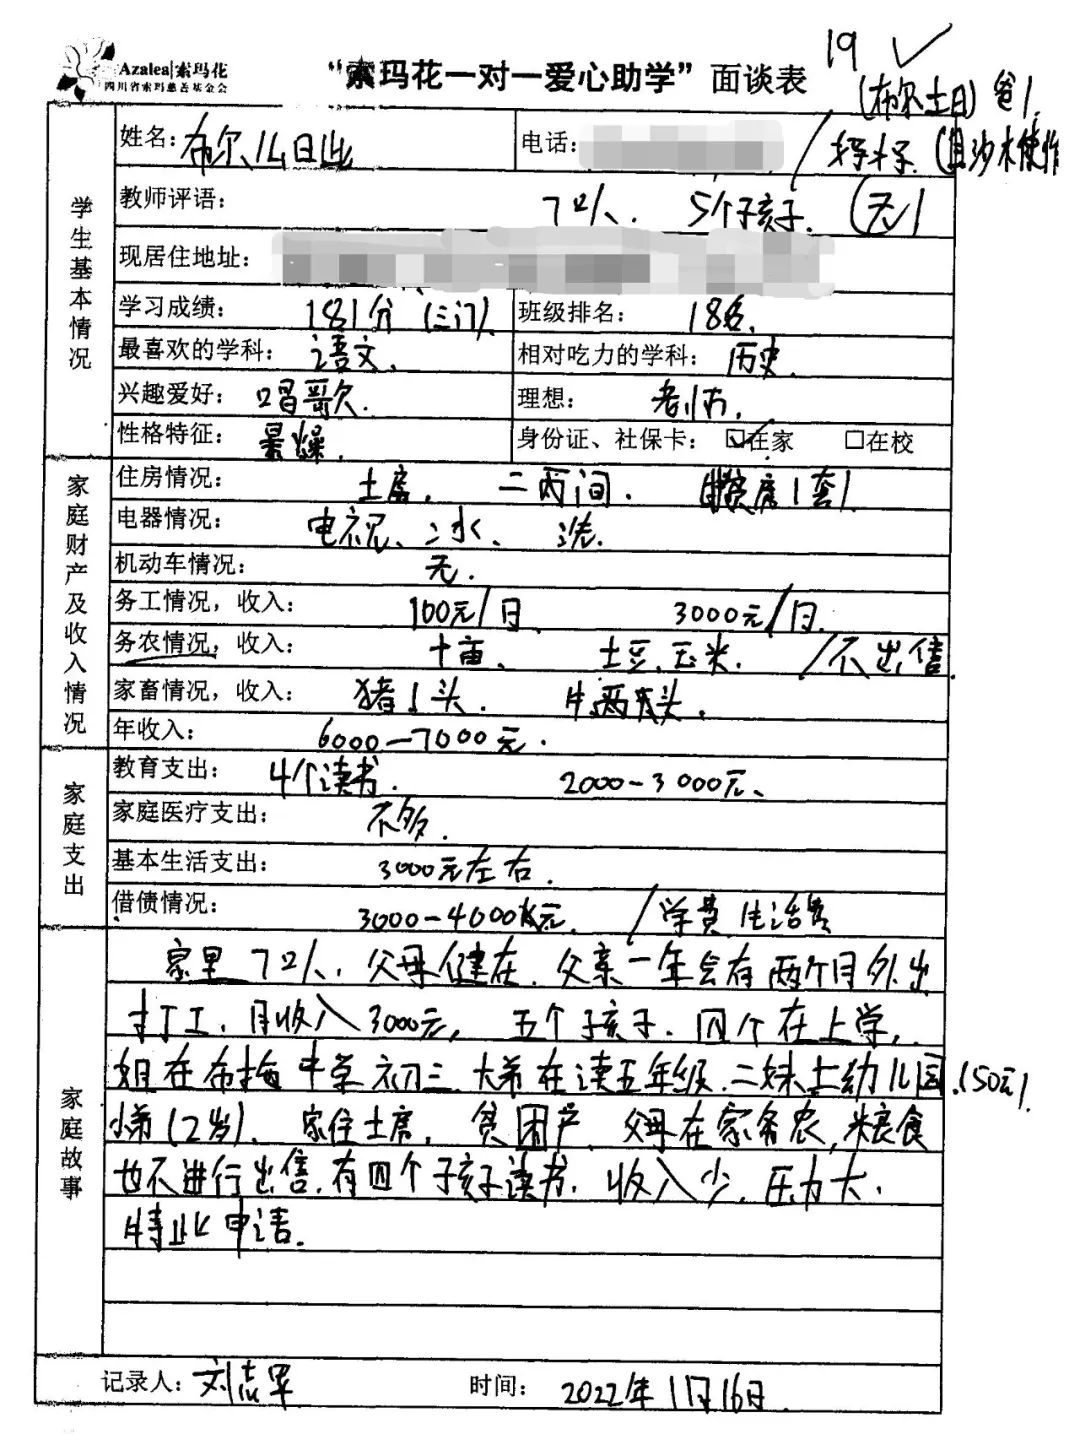 19 ✓
Azalea|索玛花
四川省索玛慈善基金会
“索玛花一对一爱心助学”面谈表
(布尔土日)爸1
姓名: 布尔么日
电话: /
教师评语: 7口人. 5个子孩子. (无)
现居住地址:
学生基本情况
学习成绩: 181分 (三门)
班级排名: 18名.
最喜欢的学科: 语文.
相对吃力的学科: 历史.
兴趣爱好: 唱歌.
理想: 老师.
性格特征: 暴燥.
身份证、社保卡: ☑在家 □在校
家庭财产及收入情况
住房情况: 土房. 二两间.
电器情况: 电视、冰、洗.
机动车情况: 无.
务工情况，收入: 100元/日 3000元/月.
务农情况，收入: 十亩、 土豆、玉米. /不出售.
家畜情况，收入: 猪1头. 牛两头.
年收入: 6000-7000元.
家庭支出
教育支出: 4个读书. 2000-3000元、
家庭医疗支出: 不多.
基本生活支出: 3000元左右.
借债情况: 3000-4000元. /学费 生活费
家庭故事
家里7口人, 父母健在. 父亲一年会有两个月外出
打工, 月收入3000元, 五个子孩子. 四个在上学,
姐在布拖中学初三. 大弟在读五年级. 二妹上幼儿园.(50元)
小弟(2岁)、家住土房, 贫困户, 父母在家务农, 粮食
也不进行出售. 有四个子孩子读书. 收入少, 压力大.
特此申请.
记录人: 刘志军
时间: 2022年11月16日.